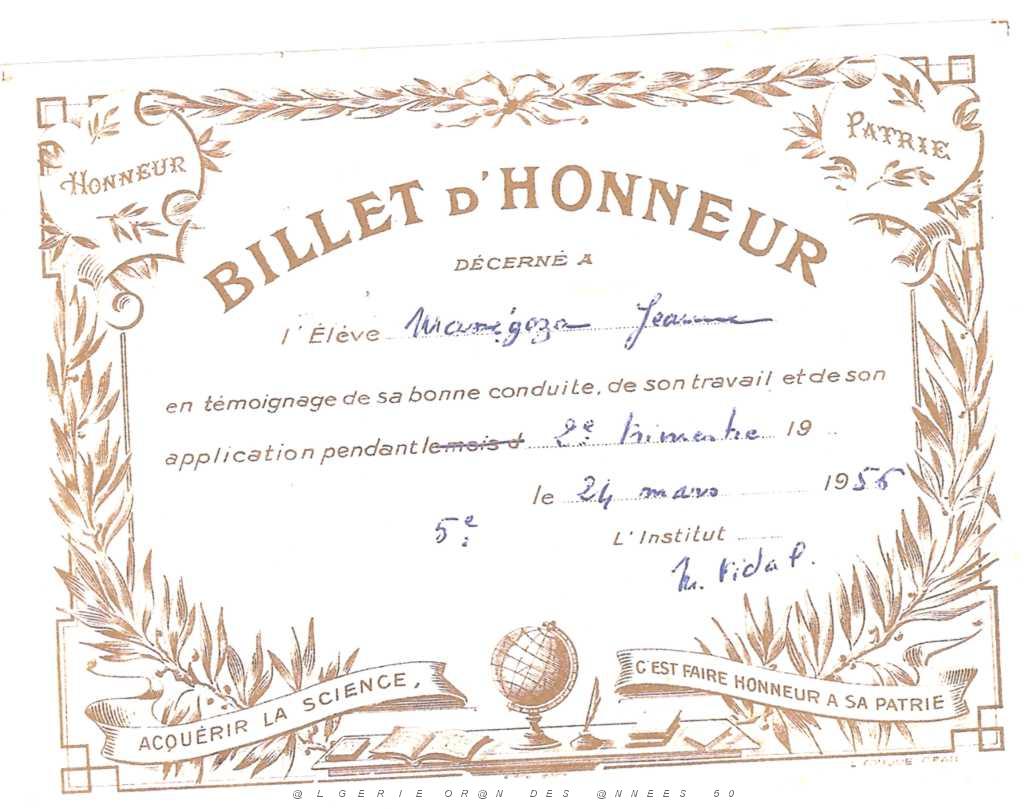 HONNEUR
PATRIE
BILLET D'HONNEUR
DÉCERNÉ A
l'Élève Manégoza Jeanne
en témoignage de sa bonne conduite, de son travail et de son
application pendant le mois d 2e trimestre 19
le 24 mars 1956
5e
L'Institut
M. Vidal.
ACQUÉRIR LA SCIENCE,
C'EST FAIRE HONNEUR A SA PATRIE
@LGERIE OR@N DES @NNEES 50